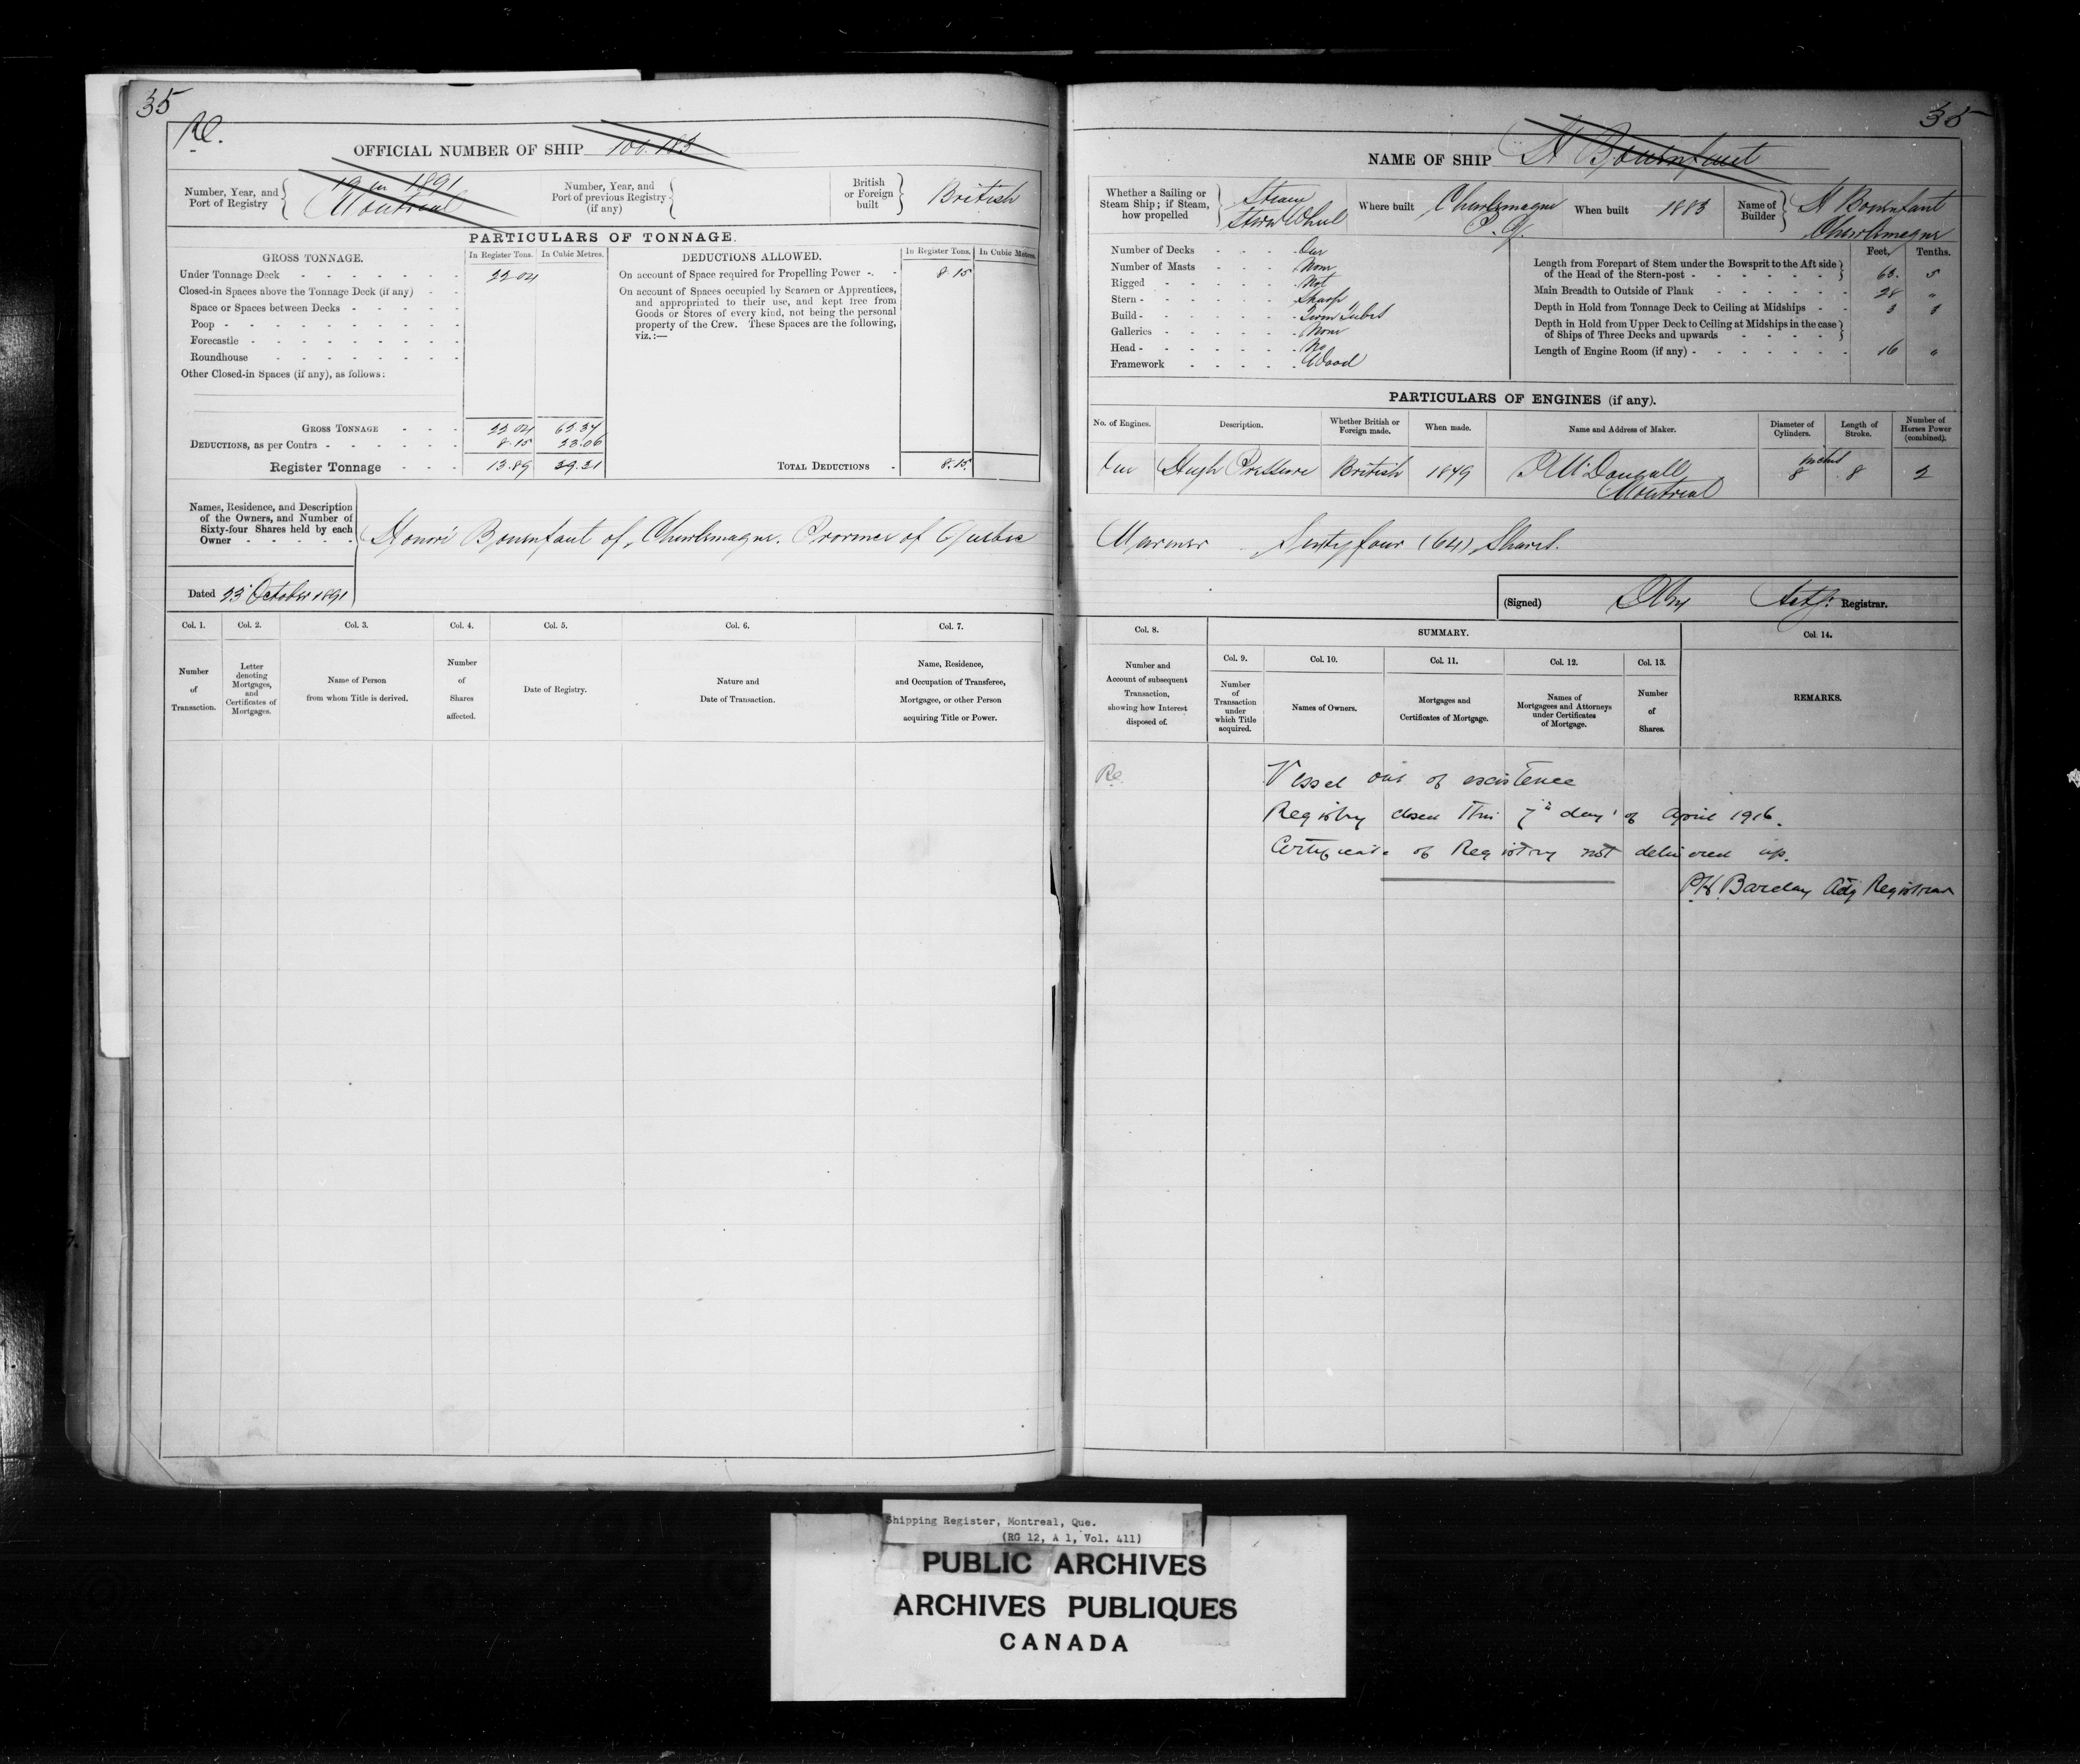 35
Re.
OFFICIAL NUMBER OF SHIP 100.183
Number, Year, and Port of Registry
19 in 1891
Montreal
Number, Year, and Port of previous Registry (if any)
British or Foreign built
British
PARTICULARS OF TONNAGE.
GROSS TONNAGE.
In Register Tons. In Cubic Metres.
DEDUCTIONS ALLOWED.
In Register Tons. In Cubic Metres.
Under Tonnage Deck 22.04
On account of Space required for Propelling Power 8.15
Closed-in Spaces above the Tonnage Deck (if any)
Space or Spaces between Decks
Poop
Forecastle
Roundhouse
Other Closed-in Spaces (if any), as follows:
On account of Spaces occupied by Seamen or Apprentices,
and appropriated to their use, and kept free from
Goods or Stores of every kind, not being the personal
property of the Crew. These Spaces are the following,
viz.:—
GROSS TONNAGE 22.04 62.37
DEDUCTIONS, as per Contra 8.15 23.06
Register Tonnage 13.89 39.31
TOTAL DEDUCTIONS 8.15
Names, Residence, and Description
of the Owners, and Number of
Sixty-four Shares held by each
Owner
Honoré Bounfant of, Charlemagne. Province of Quebec
Dated 23 October 1891
Col. 1. Col. 2. Col. 3. Col. 4. Col. 5. Col. 6. Col. 7.
Number of Transaction.
Letter denoting Mortgages, and Certificates of Mortgages.
Name of Person from whom Title is derived.
Number of Shares affected.
Date of Registry.
Nature and Date of Transaction.
Name, Residence, and Occupation of Transferee, Mortgagee, or other Person acquiring Title or Power.
35
NAME OF SHIP H Bounfant
Whether a Sailing or Steam Ship; if Steam, how propelled
Steam
Stern Wheel
Where built Charlemagne
P.Q.
When built 1883
Name of Builder
H Bounfant
Charlemagne
Number of Decks One
Number of Masts None
Rigged Not
Stern Sharp
Build
Galleries None
Head No
Framework Wood
Feet. Tenths.
Length from Forepart of Stem under the Bowsprit to the Aft side
of the Head of the Stern-post 63. 5
Main Breadth to Outside of Plank 28 "
Depth in Hold from Tonnage Deck to Ceiling at Midships 3
Depth in Hold from Upper Deck to Ceiling at Midships in the case
of Ships of Three Decks and upwards
Length of Engine Room (if any) 16 "
PARTICULARS OF ENGINES (if any).
No. of Engines. Description. Whether British or Foreign made. When made. Name and Address of Maker. Diameter of Cylinders. Length of Stroke. Number of Horses Power (combined).
inches
One High Pressure British 1849 McDougall 8 8 2
Montreal
Mariner Sixty four (64) Shares.
(Signed) Actg. Registrar.
Col. 8. SUMMARY. Col. 14.
Col. 9. Col. 10. Col. 11. Col. 12. Col. 13.
Number and Account of subsequent Transaction, showing how Interest disposed of.
Number of Transaction under which Title acquired.
Names of Owners.
Mortgages and Certificates of Mortgage.
Names of Mortgagees and Attorneys under Certificates of Mortgage.
Number of Shares.
REMARKS.
Re.
Vessel out of existence
Registry closed this 7th day of April 1916.
Certificate of Registry not delivered up.
P.H. Barclay Actg Registrar
Shipping Register, Montreal, Que.
(RG 12, A 1, Vol. 411)
PUBLIC ARCHIVES
ARCHIVES PUBLIQUES
CANADA